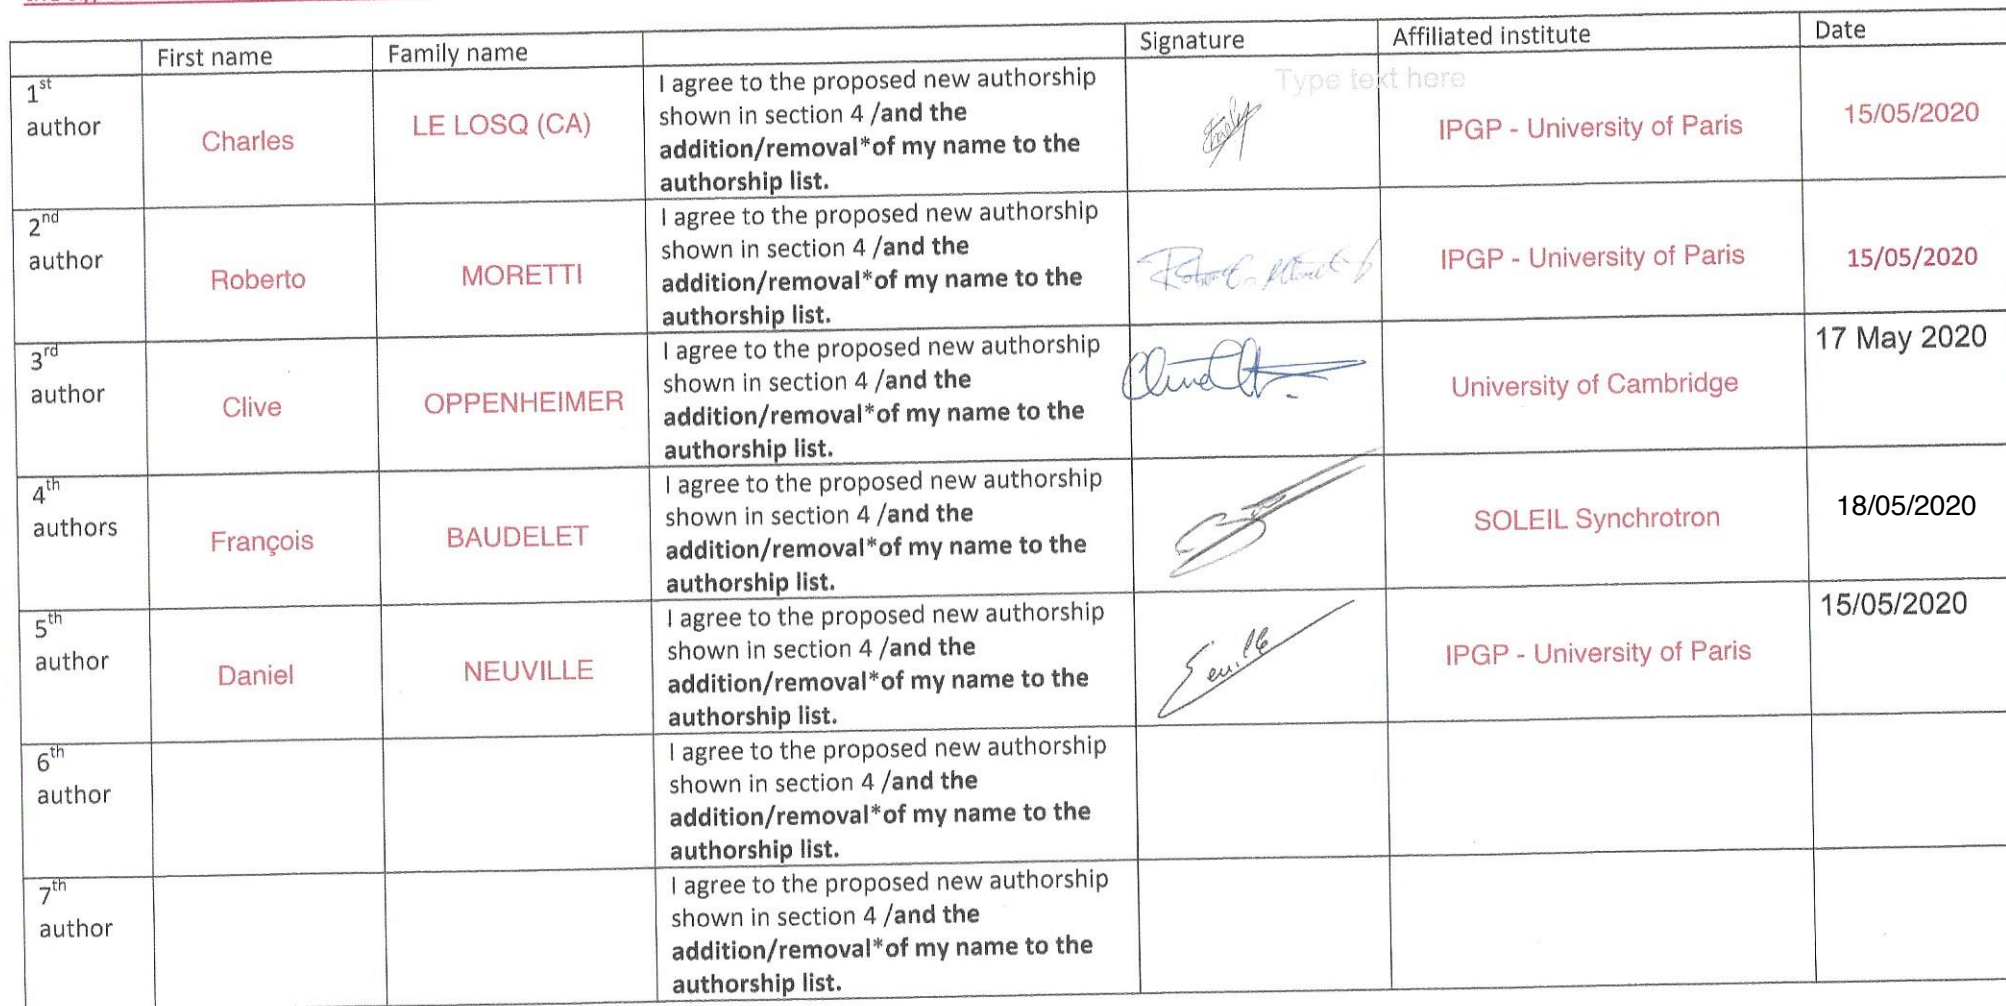 First name Family name Signature Affiliated institute Date
1st author Charles LE LOSQ (CA) I agree to the proposed new authorship
shown in section 4 /and the
addition/removal*of my name to the
authorship list.
Type text here
IPGP - University of Paris 15/05/2020
2nd author Roberto MORETTI I agree to the proposed new authorship
shown in section 4 /and the
addition/removal*of my name to the
authorship list.
IPGP - University of Paris 15/05/2020
3rd author Clive OPPENHEIMER I agree to the proposed new authorship
shown in section 4 /and the
addition/removal*of my name to the
authorship list.
University of Cambridge 17 May 2020
4th authors François BAUDELET I agree to the proposed new authorship
shown in section 4 /and the
addition/removal*of my name to the
authorship list.
SOLEIL Synchrotron 18/05/2020
5th author Daniel NEUVILLE I agree to the proposed new authorship
shown in section 4 /and the
addition/removal*of my name to the
authorship list.
IPGP - University of Paris 15/05/2020
6th author I agree to the proposed new authorship
shown in section 4 /and the
addition/removal*of my name to the
authorship list.
7th author I agree to the proposed new authorship
shown in section 4 /and the
addition/removal*of my name to the
authorship list.